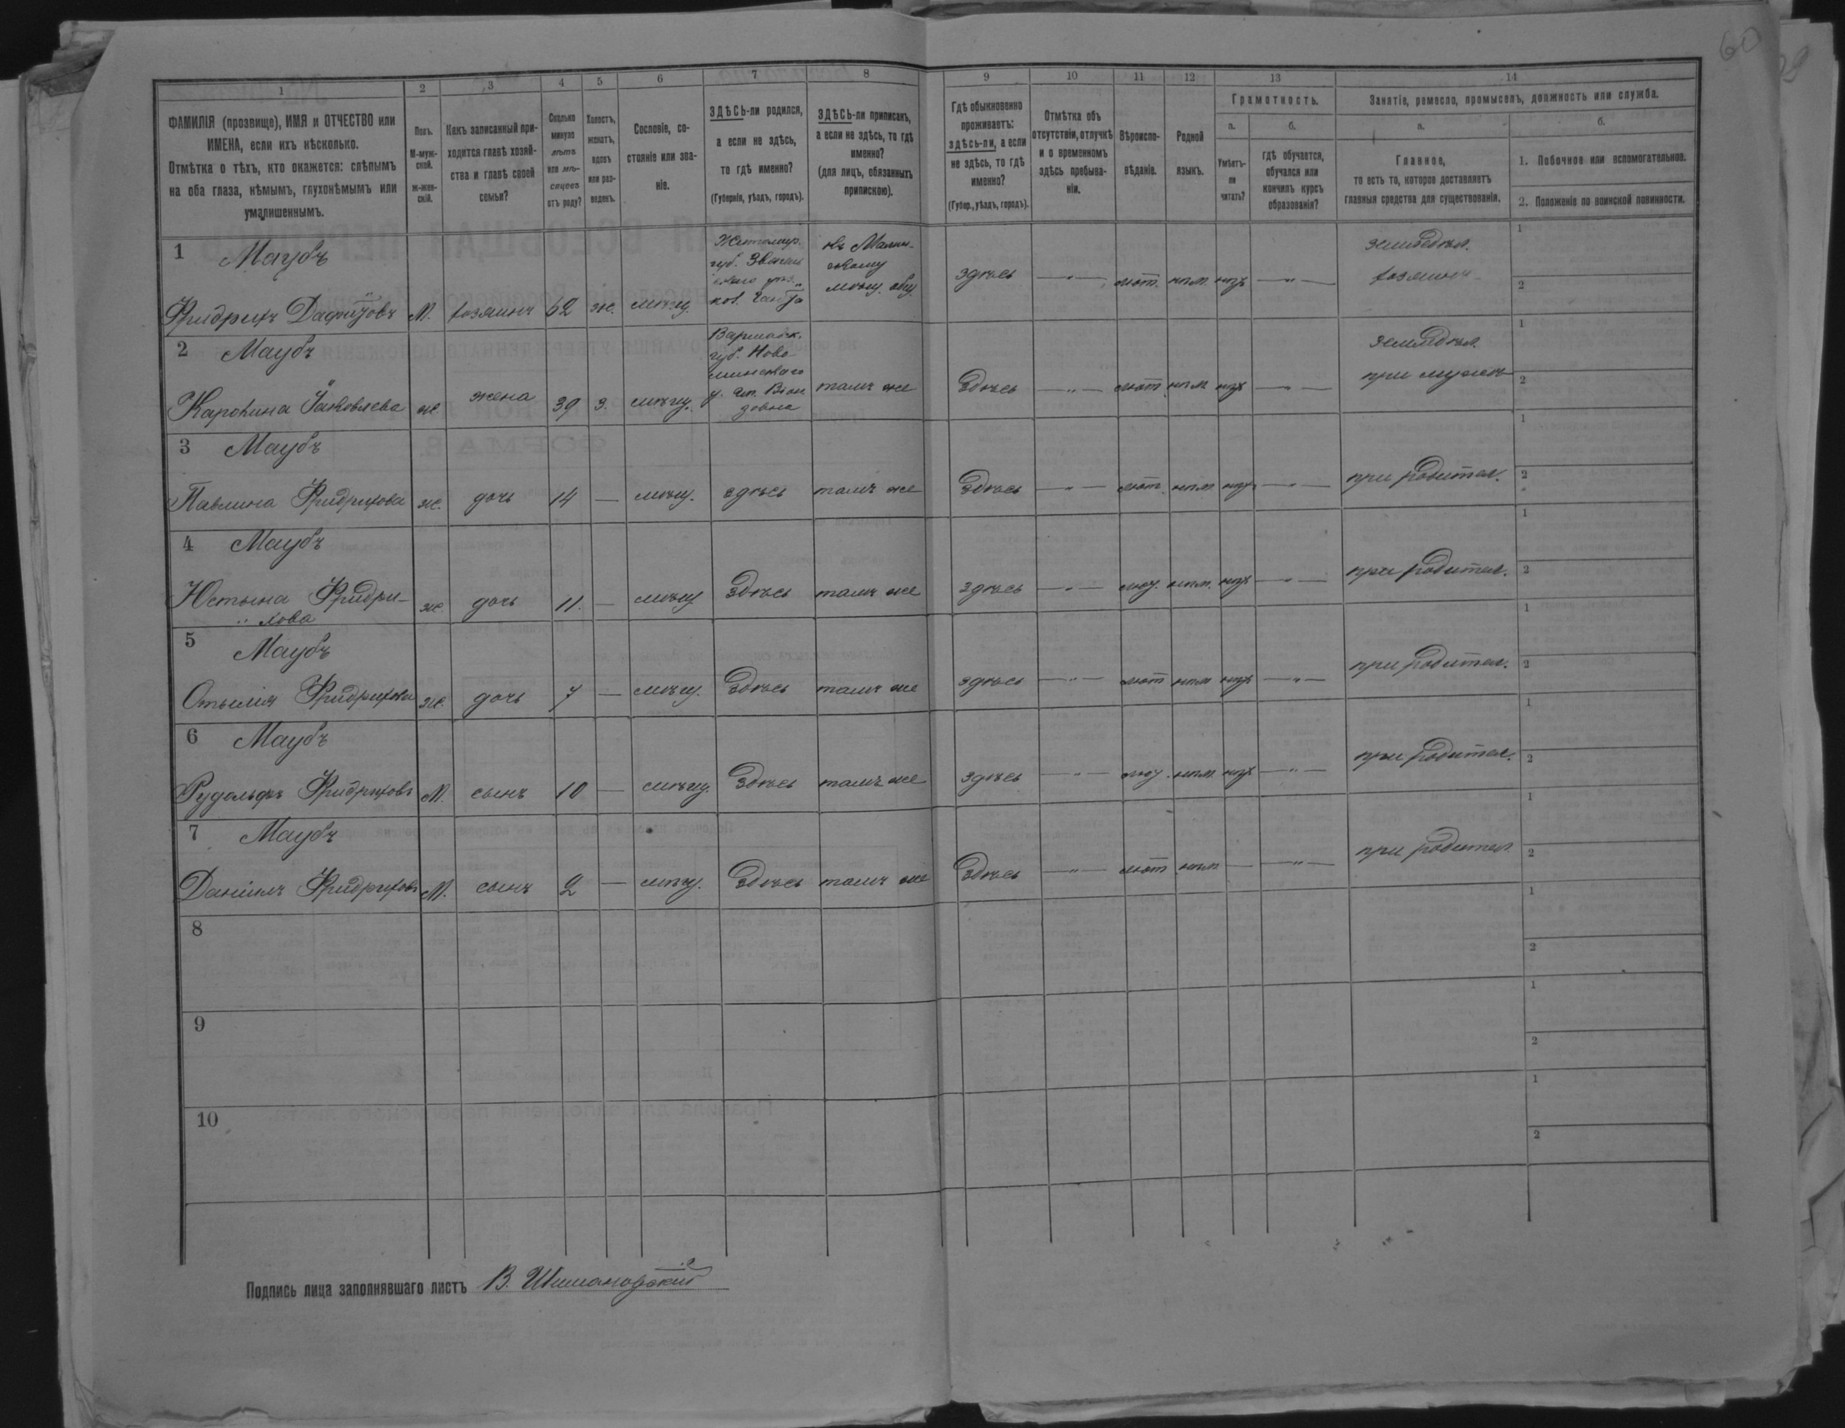 60
1 2 3 4 5 6 7 8 9 10 11 12 13 14
ФАМИЛІЯ (прозвище), ИМЯ и ОТЧЕСТВО или
ИМЕНА, если ихъ нѣсколько.
Отмѣтка о тѣхъ, кто окажется: слѣпымъ
на оба глаза, нѣмымъ, глухонѣмымъ или
умалишеннымъ.
Полъ.
М-муж-
ской.
ж-жен-
скій.
Какъ записанный при-
ходится главѣ хозяй-
ства и главѣ своей
семьи?
Сколько
минуло
лѣтъ
или мѣ-
сяцевъ
отъ роду?
Холостъ,
женатъ,
вдовъ
или раз-
веденъ.
Сословіе, со-
стояніе или зва-
ніе.
ЗДѢСЬ-ли родился,
а если не здѣсь,
то гдѣ именно?
(Губернія, уѣздъ, городъ).
ЗДѢСЬ-ли приписанъ,
а если не здѣсь, то гдѣ
именно?
(для лицъ, обязанныхъ
припискою).
Гдѣ обыкновенно
проживаетъ:
здѣсь-ли, а если
не здѣсь, то гдѣ
именно?
(Губер., уѣздъ, городъ).
Отмѣтка объ
отсутствіи, отлучкѣ
и о временномъ
здѣсь пребыва-
ніи.
Вѣроиспо-
вѣданіе.
Родной
языкъ.
Грамотность.
а.
Умѣетъ-
ли
читать?
б.
гдѣ обучается,
обучался или
кончилъ курсъ
образованія?
Занятіе, ремесло, промыселъ, должность или служба.
а.
Главное,
то есть то, которое доставляетъ
главныя средства для существованія.
б.
1. Побочное или вспомогательное.
2. Положеніе по воинской повинности.
1 Маубъ
Фридрихъ М. хозяинъ 62 ж. мѣщ. здѣсь — лют. нѣм. земледѣл. хозяинъ
1
2
2 Маубъ
Каролина Яковлева ж. жена 39 з. мѣщ. тамъ же Здѣсь — лют нѣм земледѣл. при мужѣ
1
2
3 Маубъ
Павлина Фридрихова ж. дочь 14 — мѣщ. здѣсь тамъ же Здѣсь — лют. нѣм при родител.
1
2
4 Маубъ
Юстына Фридри-
хова ж дочь 11. — мѣщ Здѣсь тамъ же здѣсь — нѣм. при родител.
1
2
5 Маубъ
Отылія Фридрихова ж. дочь 7 — мѣщ. Здѣсь тамъ же здѣсь — лют нѣм при родител.
1
2
6 Маубъ
Рудольфъ Фридриховъ М. сынъ 10 — мѣщ. Здѣсь тамъ же здѣсь — нѣм при родител.
1
2
7 Маубъ
Даніилъ Фридриховъ М. сынъ 2 — мѣщ. Здѣсь тамъ же Здѣсь — лют нѣм — — при родител
1
2
8
1
2
9
1
2
10
1
2
Подпись лица заполнявшаго листъ В. Шимановскій